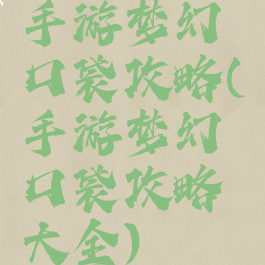 手游梦幻
口袋攻略(
手游梦幻
口袋攻略
大全)